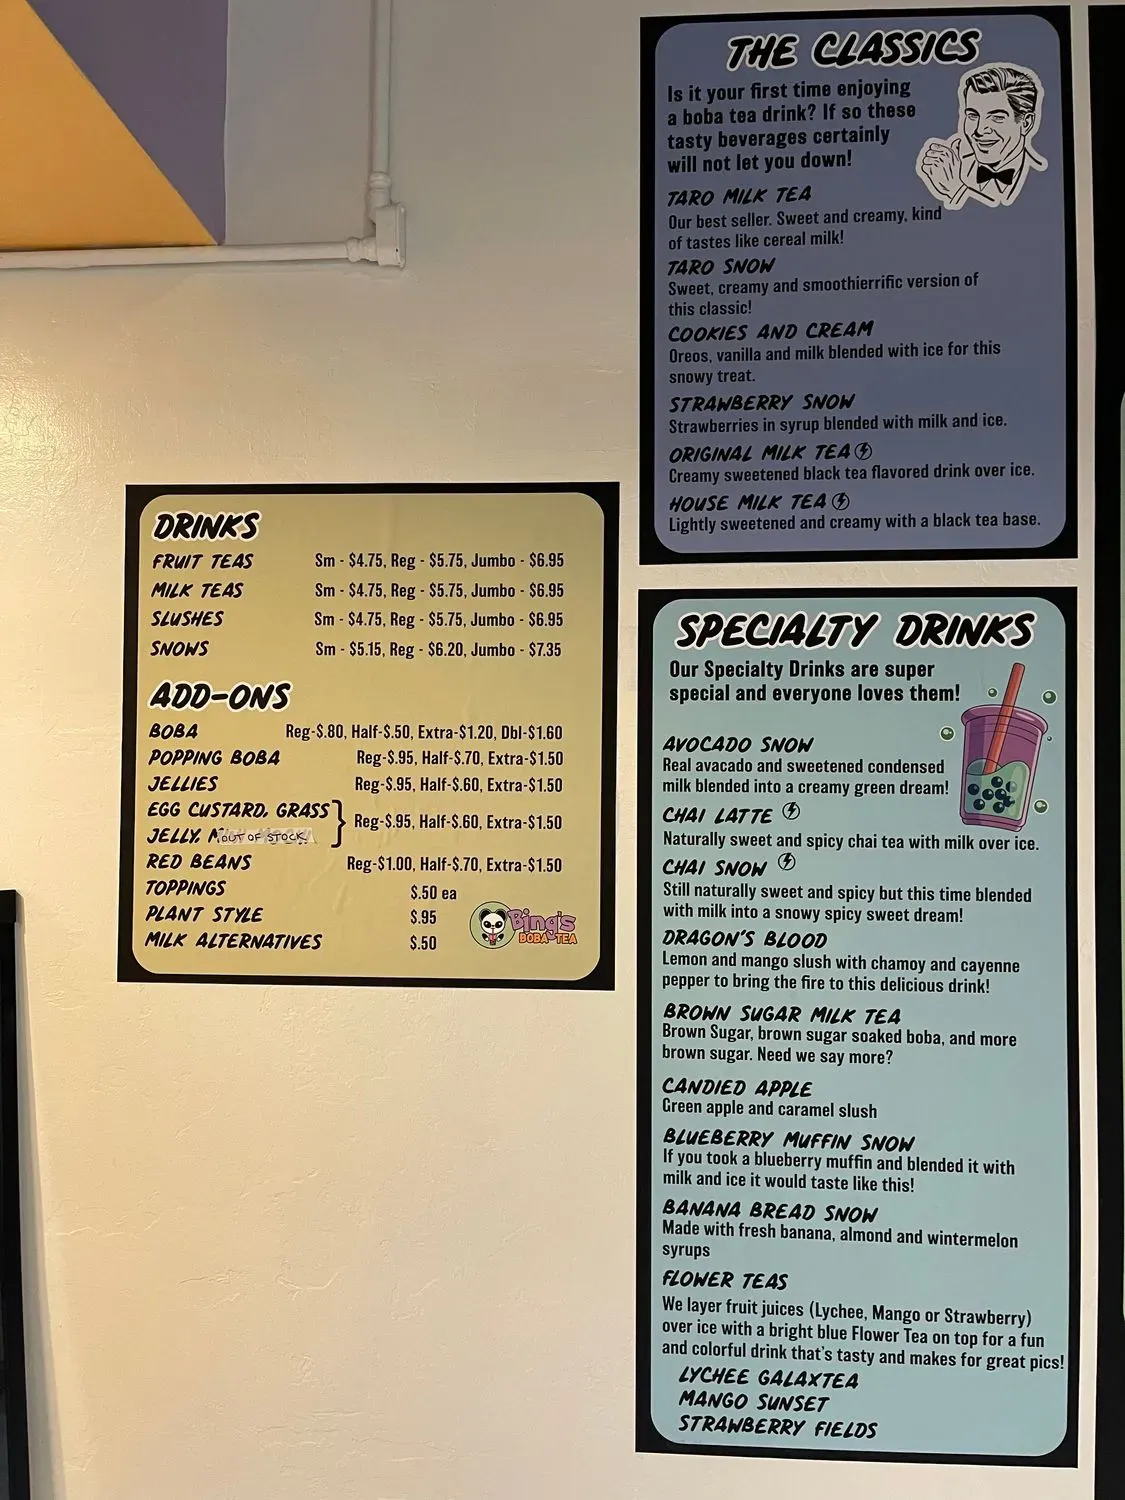 THE CLASSICS
Is it your first time enjoying
a boba tea drink? If so these
tasty beverages certainly
will not let you down!
TARO MILK TEA
Our best seller. Sweet and creamy, kind
of tastes like cereal milk!
TARO SNOW
Sweet, creamy and smoothierrific version of
this classic!
COOKIES AND CREAM
Oreos, vanilla and milk blended with ice for this
snowy treat.
STRAWBERRY SNOW
Strawberries in syrup blended with milk and ice.
ORIGINAL MILK TEA
Creamy sweetened black tea flavored drink over ice.
HOUSE MILK TEA
Lightly sweetened and creamy with a black tea base.
DRINKS
FRUIT TEAS Sm - $4.75, Reg - $5.75, Jumbo - $6.95
MILK TEAS Sm - $4.75, Reg - $5.75, Jumbo - $6.95
SLUSHES Sm - $4.75, Reg - $5.75, Jumbo - $6.95
SNOWS Sm - $5.15, Reg - $6.20, Jumbo - $7.35
ADD-ONS
BOBA Reg-$.80, Half-$.50, Extra-$1.20, Dbl-$1.60
POPPING BOBA Reg-$.95, Half-$.70, Extra-$1.50
JELLIES Reg-$.95, Half-$.60, Extra-$1.50
EGG CUSTARD, GRASS
JELLY, OUT OF STOCK } Reg-$.95, Half-$.60, Extra-$1.50
RED BEANS Reg-$1.00, Half-$.70, Extra-$1.50
TOPPINGS $.50 ea
PLANT STYLE $.95
MILK ALTERNATIVES $.50
Bing's
BOBA TEA
SPECIALTY DRINKS
Our Specialty Drinks are super
special and everyone loves them!
AVOCADO SNOW
Real avacado and sweetened condensed
milk blended into a creamy green dream!
CHAI LATTE
Naturally sweet and spicy chai tea with milk over ice.
CHAI SNOW
Still naturally sweet and spicy but this time blended
with milk into a snowy spicy sweet dream!
DRAGON'S BLOOD
Lemon and mango slush with chamoy and cayenne
pepper to bring the fire to this delicious drink!
BROWN SUGAR MILK TEA
Brown Sugar, brown sugar soaked boba, and more
brown sugar. Need we say more?
CANDIED APPLE
Green apple and caramel slush
BLUEBERRY MUFFIN SNOW
If you took a blueberry muffin and blended it with
milk and ice it would taste like this!
BANANA BREAD SNOW
Made with fresh banana, almond and wintermelon
syrups
FLOWER TEAS
We layer fruit juices (Lychee, Mango or Strawberry)
over ice with a bright blue Flower Tea on top for a fun
and colorful drink that's tasty and makes for great pics!
LYCHEE GALAXTEA
MANGO SUNSET
STRAWBERRY FIELDS